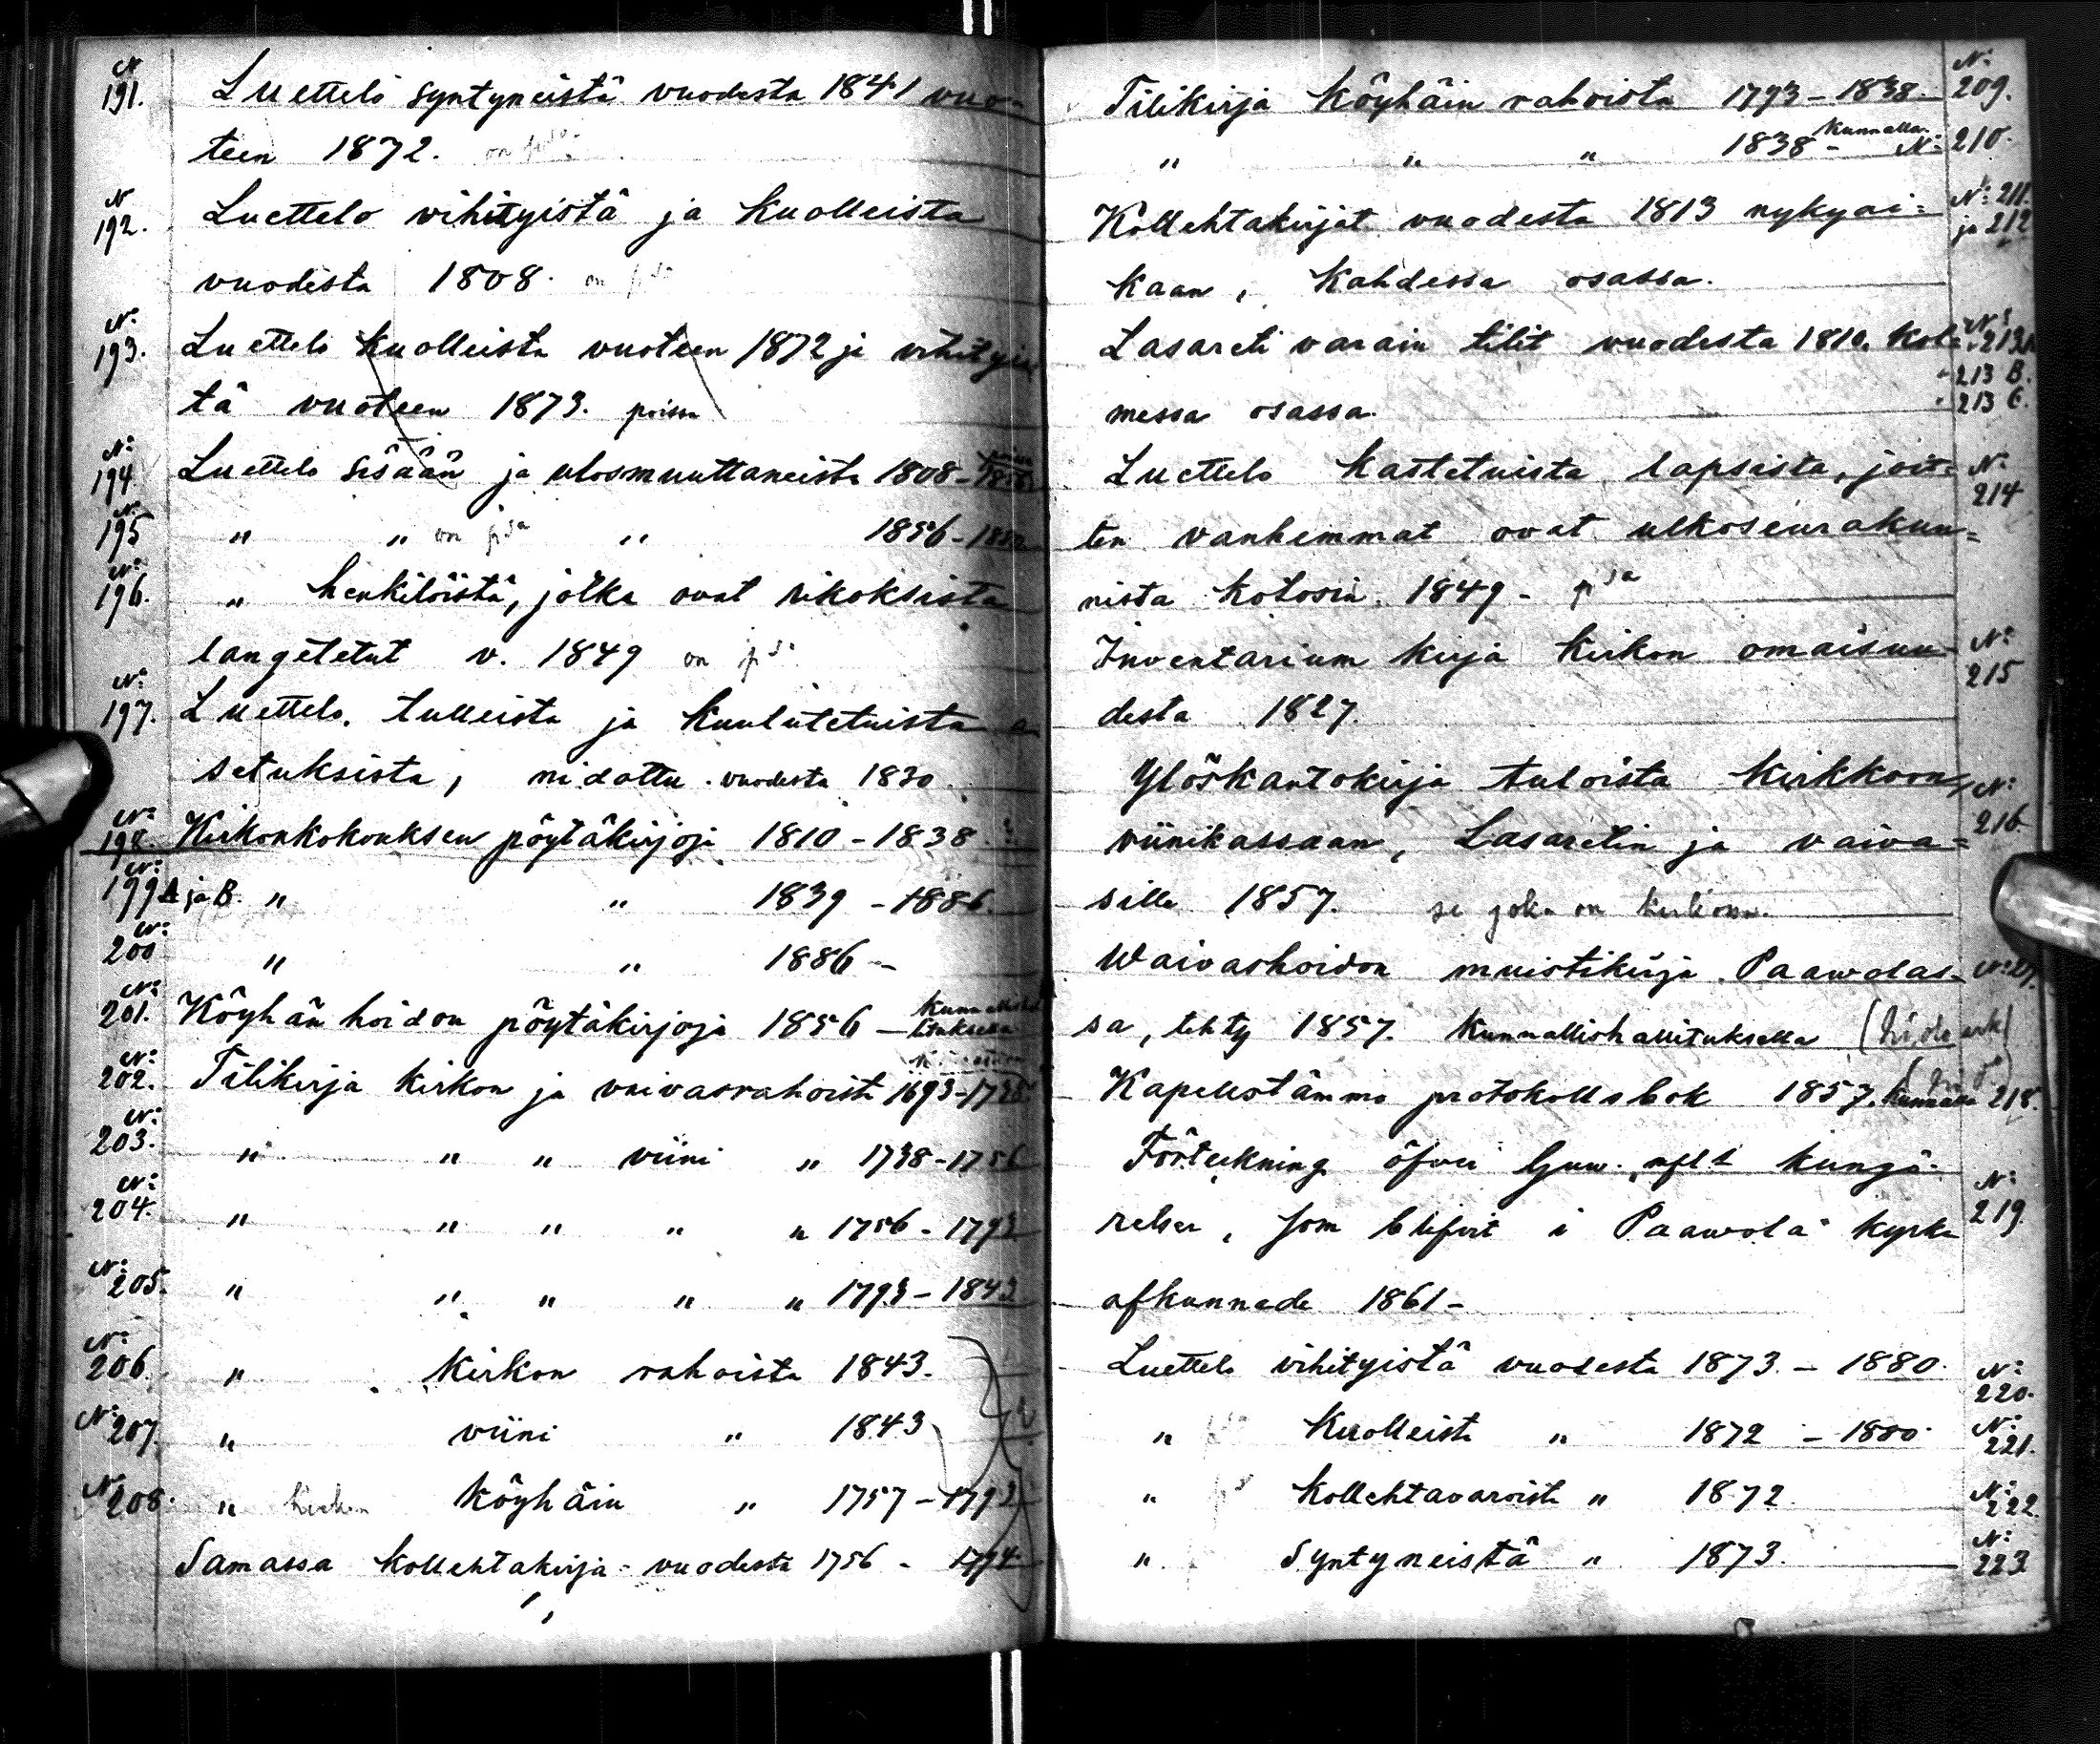 N 191. Luettelo syntyneistä vuodesta 1841 vuo-
teen 1872. on
N 192. Luettelo vihityistä ja kuolleista
vuodista 1808. on
N: 193. Luettelo kuolleista vuoteen 1872 ja vihityis
tä vuoteen 1873. poissa
N: 194 Luettelo sisään ja ulosmuuttaneista 1808 -
N: 195 " " on " 1856 - 1880
N: 196. " henkilöistä, jotka ovat rikoksista
langetetut v. 1849 on
N: 197. Luettelo tulleista ja kuulutetuista a
setuksista, nidottu vuodesta 1830
N: 198. Kirkonkokouksen pöytäkirjoja 1810 - 1838
N: 199 A ja B. " " 1839 - 1886.
N: 200 " " 1886 -
N: 201. Köyhän hoidon pöytäkirjoja 1856 -
N: 202. Tilikirja kirkon ja vaivasrahoist 1693 - 1738
N: 203. " " " viini " 1738 - 1756
N: 204. " " " " " 1756 - 1793
N: 205. " " " " " 1793 - 1843
N: 206. " Kirkon rahoista 1843.
N: 207. " viini " 1843
N 208. " Köyhäin " 1757 - 1793
Samassa kollehtakirja vuodesta 1756 - 1794
Tilikirja Köyhäin rahoista 1793 - 1838. N: 209.
" " " 1838 - Kunnalla N: 210.
Kollehtakirjat vuodesta 1813 nykyai= N: 211.
kaan, kahdessa osassa. ja 212
Lasareti varain tilit vuodesta 1810. kol= N: 213 A
" 213 B.
messa osassa. " 213 C.
Luettelo kastetuista lapsista, joit= N: 214
ten vanhemmat ovat ulkoseurakun=
nista kotosin. 1849 -
Inventarium kirja kirkon omaisuu- N: 215
desta 1827.
Ylöskantokirja tuloista kirkkoon, N: 216.
viinikassaan, Lasaretin ja vaiva=
sille 1857. se joka on
Waivashoidon muistikirja Paawolas- N: 217.
sa, tehty 1857. Kunnallishallituksella
Kapellstämmo protokollsbok 1857. Kunnalla 218.
Förteckning öfver Guv. kungö- N: 219
relser, som blifvit i Paawola kyrka
afkunnade 1861 -
Luettelo vihityistä vuodesta 1873. - 1880. N: 220.
" Kuolleist " 1872 - 1880. N: 221.
" Kollehtavaroist " 1872. N: 222.
" Syntyneistä " 1873. N: 223